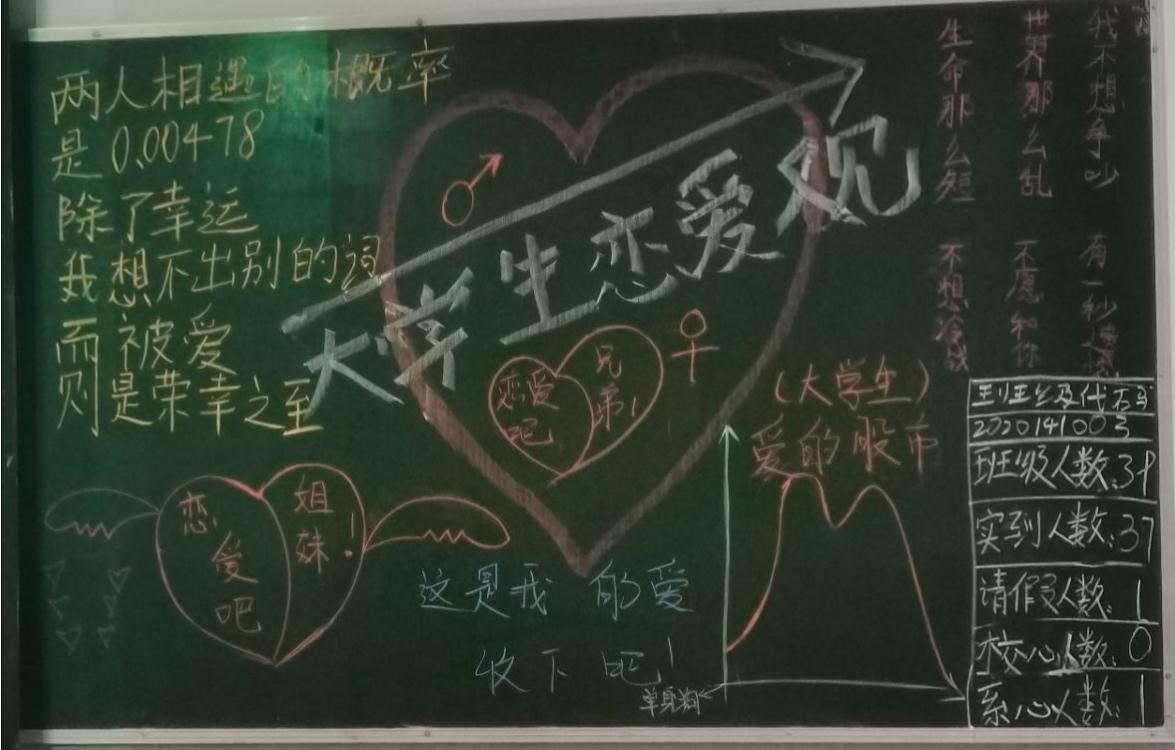 两人相遇的概率
是0.00478
除了幸运
我想不出别的词
而被爱
则是荣幸之至
大学生恋爱观
恋爱吧
兄弟!
恋爱吧
姐妹!
这是我的爱
收下吧!
(大学生)
爱的股市
单身狗
我不想争吵 有一秒
世界那么乱 不愿和你
生命那么短 不想冷战
班级代码
2020141003
班级人数:39
实到人数:37
请假人数:1
校心人数:0
系心人数:1